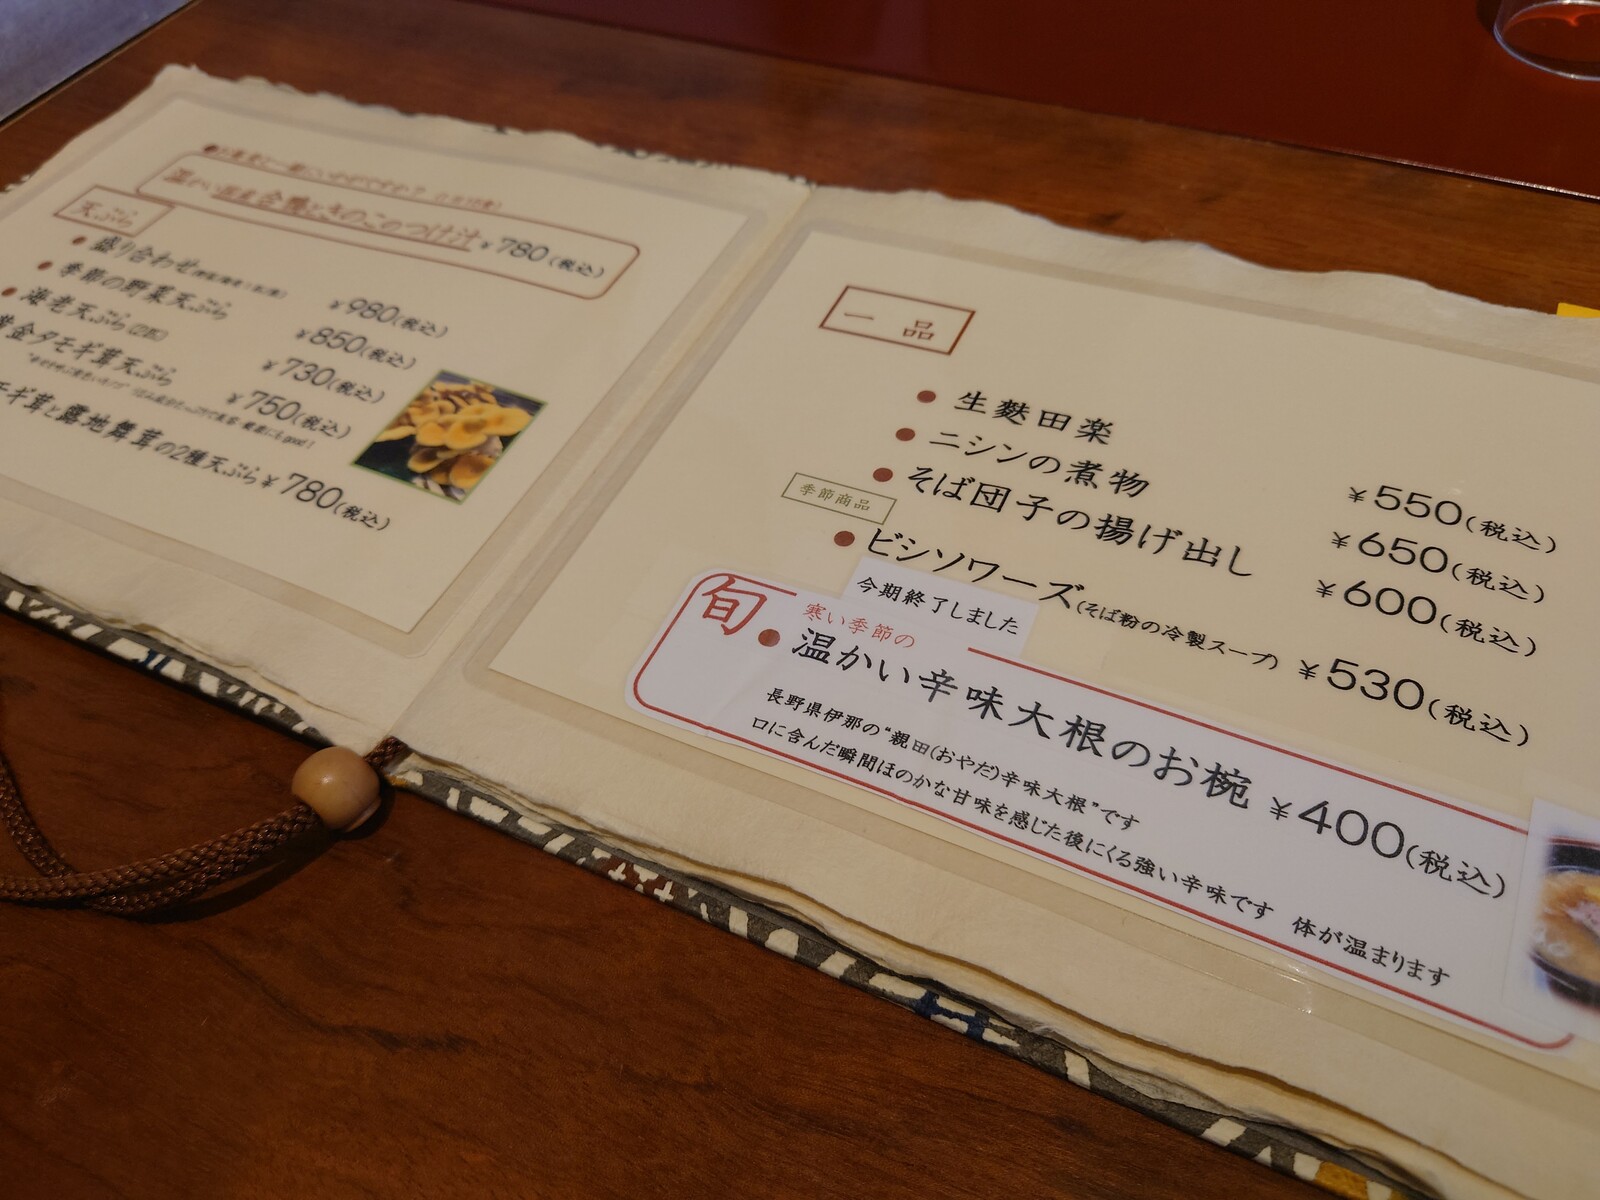 温かい国産合鴨ときのこのつけ汁 ¥780(税込)
天ぷら
盛り合わせ ¥980(税込)
季節の野菜天ぷら ¥850(税込)
海老天ぷら(2匹) ¥730(税込)
黄金タモギ茸天ぷら ¥750(税込)
モギ茸と露地舞茸の2種天ぷら ¥780(税込)
一品
生麩田楽 ¥550(税込)
ニシンの煮物 ¥650(税込)
そば団子の揚げ出し ¥600(税込)
季節商品
ビシソワーズ(そば粉の冷製スープ) ¥530(税込)
今期終了しました
旬
寒い季節の
温かい辛味大根のお椀 ¥400(税込)
長野県伊那の"親田(おやだ)辛味大根"です
口に含んだ瞬間ほのかな甘味を感じた後にくる強い辛味です 体が温まります